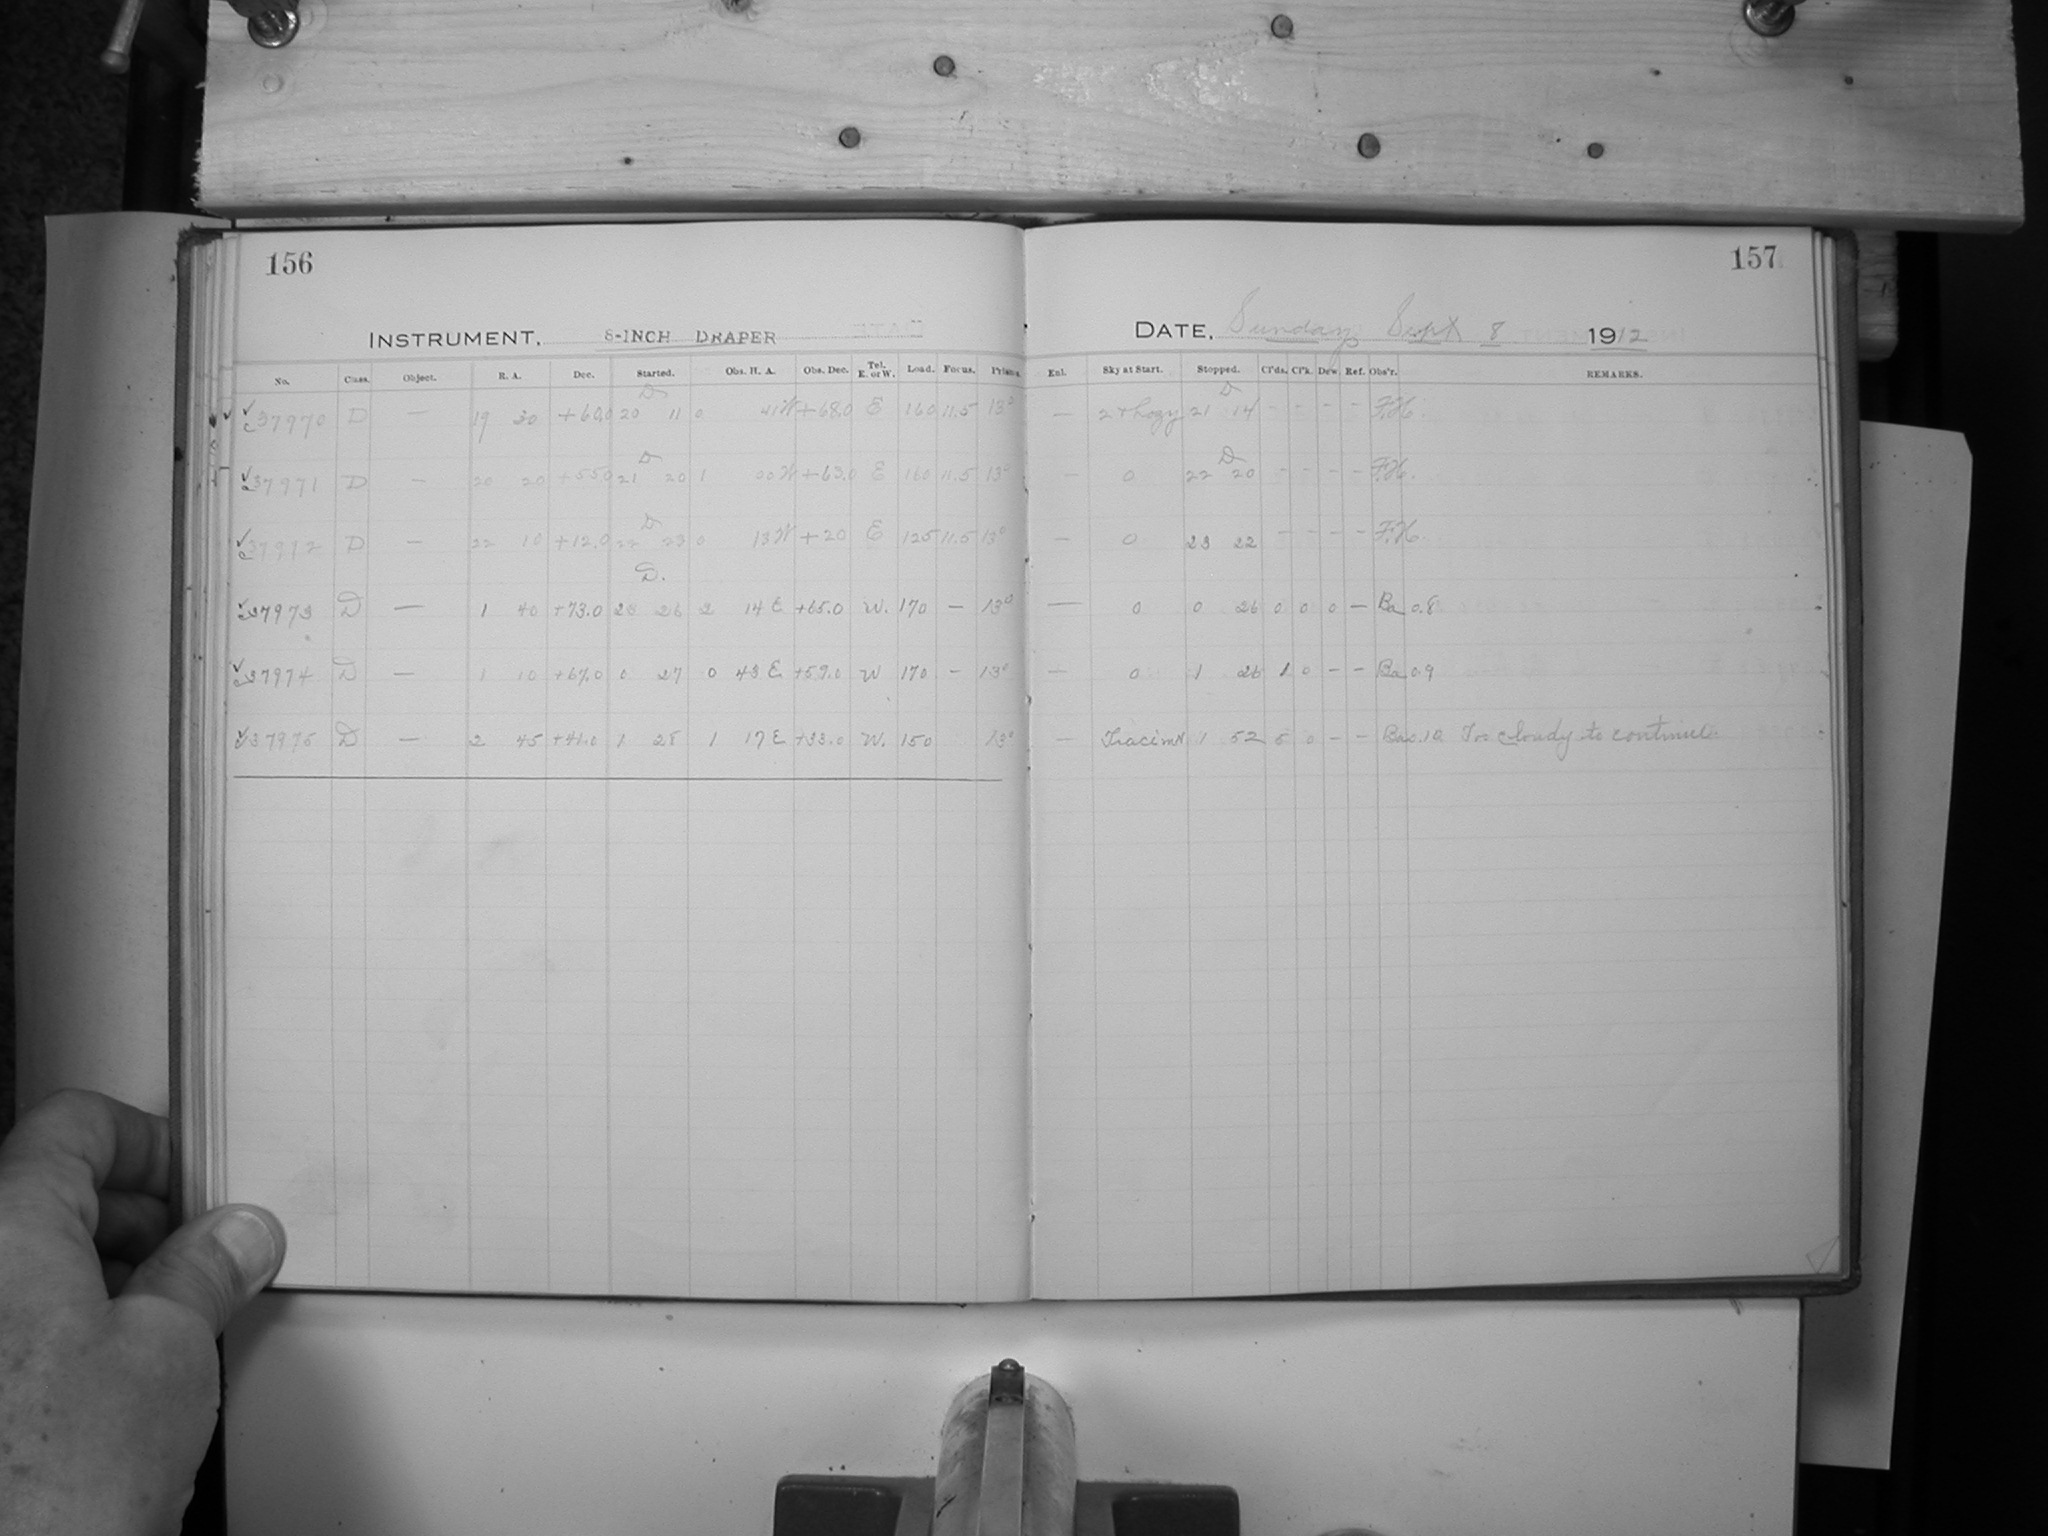 156
INSTRUMENT, 8-INCH DRAPER
No. Class. Object. R. A. Dec. Started. Obs. H. A. Obs. Dec. Tel. E. or W. Load. Focus. Prisms.
D
37970 D — 19 30 +60.0 20 11 0 41 W +68.0 E 160 11.5 13°
D
37971 D — 20 20 +55.0 21 20 1 00 W +63.0 E 160 11.5 13°
D
37972 D — 22 10 +12.0 22 23 0 13 W +20 E 125 11.5 13°
D.
37973 D — 1 40 +73.0 23 26 2 14 E +65.0 W. 170 — 13°
37974 D — 1 10 +67.0 0 27 0 43 E +59.0 W 170 — 13°
37975 D — 2 45 +41.0 1 28 1 17 E +33.0 W. 150 13°
157
DATE, Sunday, Sept 8 1912
Enl. Sky at Start. Stopped. Cl'ds. Cl'k. Dew. Ref. Obs'r. REMARKS.
D
— 2 + hazy 21 14 - - - - F.H.
D
— 0 22 20 - - - - F.H.
— 0 23 22 - - - - F.H.
— 0 0 26 0 0 0 — Ba 0.8
— 0 1 26 1 0 - - Ba 0.9
— 1 52 5 0 - - Too cloudy to continue.